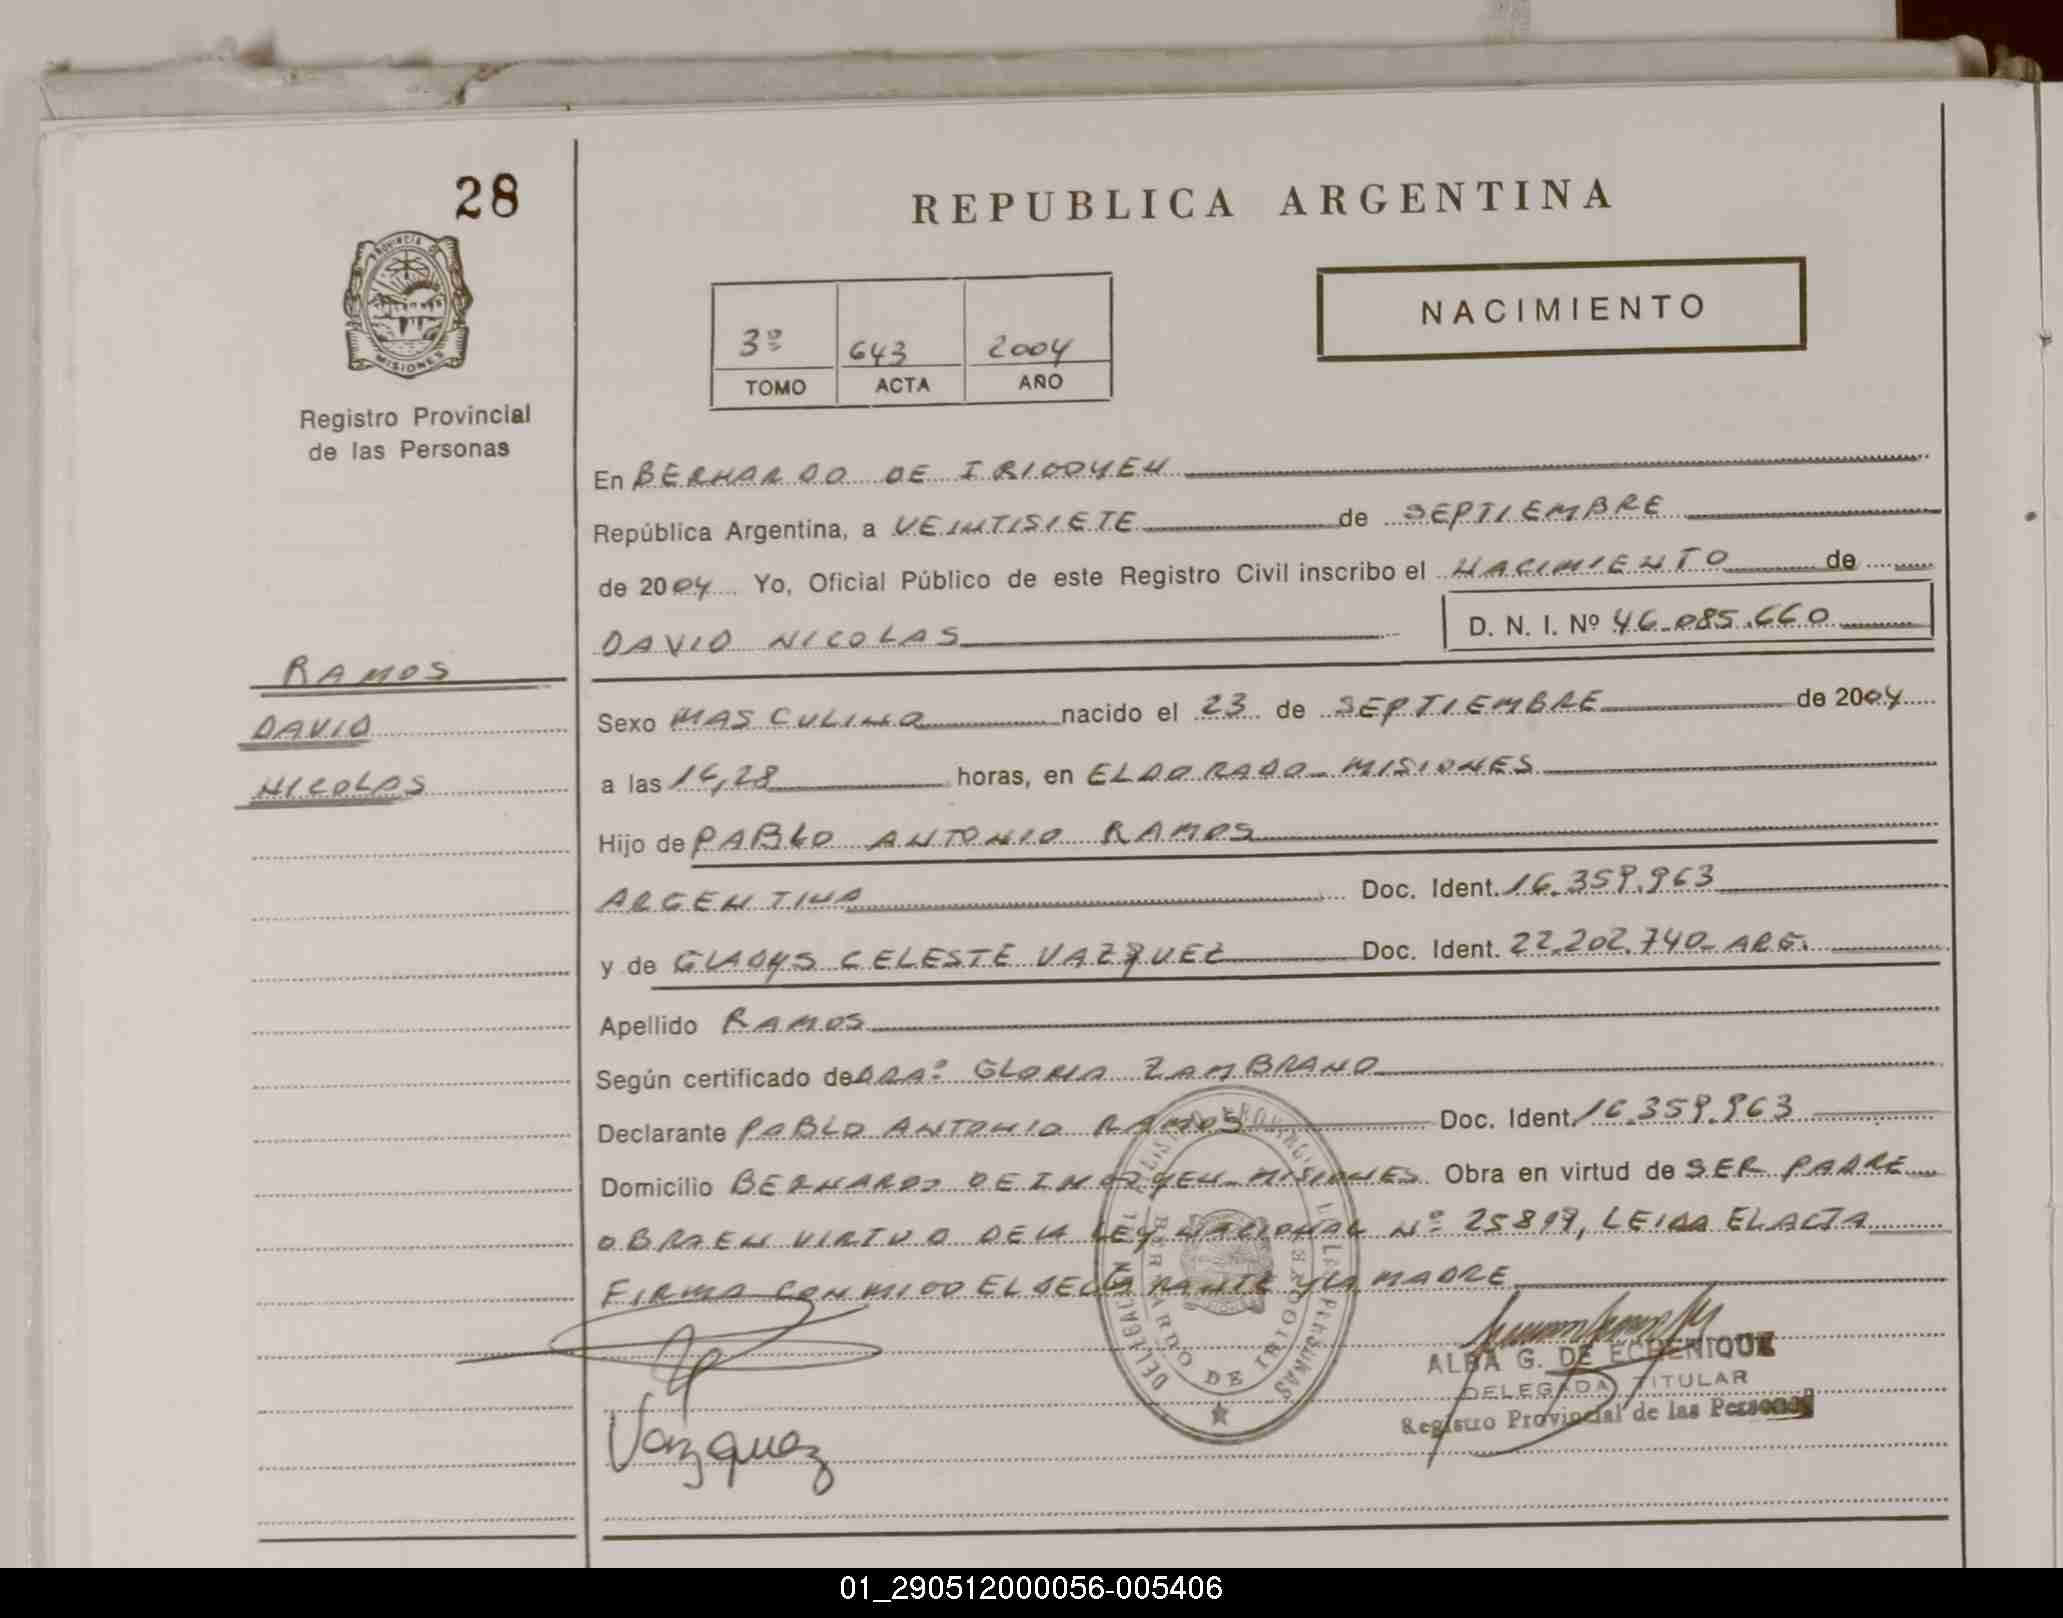 28
REPUBLICA ARGENTINA
PROVINCIA DE
MISIONES
Registro Provincial
de las Personas
NACIMIENTO
3º 643 2004
TOMO ACTA AÑO
En BERNARDO DE IRIGOYEN
República Argentina, a VEINTISIETE de SEPTIEMBRE
de 2004 Yo, Oficial Público de este Registro Civil inscribo el NACIMIENTO de
DAVID NICOLAS D. N. I. Nº 46.085.660
RAMOS
DAVID
NICOLAS
Sexo MASCULINO nacido el 23 de SEPTIEMBRE de 2004
a las 16,28 horas, en ELDORADO - MISIONES
Hijo de PABLO ANTONIO RAMOS
ARGENTINA Doc. Ident. 16.359.963
y de GLADYS CELESTE VAZQUEZ Doc. Ident. 22.202.740- ARG.
Apellido RAMOS
Según certificado de DRA: GLORIA ZAMBRANO
Declarante PABLO ANTONIO RAMOS Doc. Ident. 16.359.963
Domicilio BERNARDO DE IRIGOYEN - MISIONES. Obra en virtud de SER PADRE
OBRA EN VIRTUD DE LA LEY NACIONAL Nº 25819, LEIDA EL ACTA
FIRMA CONMIGO EL DECLARANTE Y LA MADRE
DELEGACION
BERNARDO DE IRIGOYEN
Vazquez
ALBA G. DE ECHENIQUE
DELEGADA TITULAR
Registro Provincial de las Personas
01_290512000056-005406